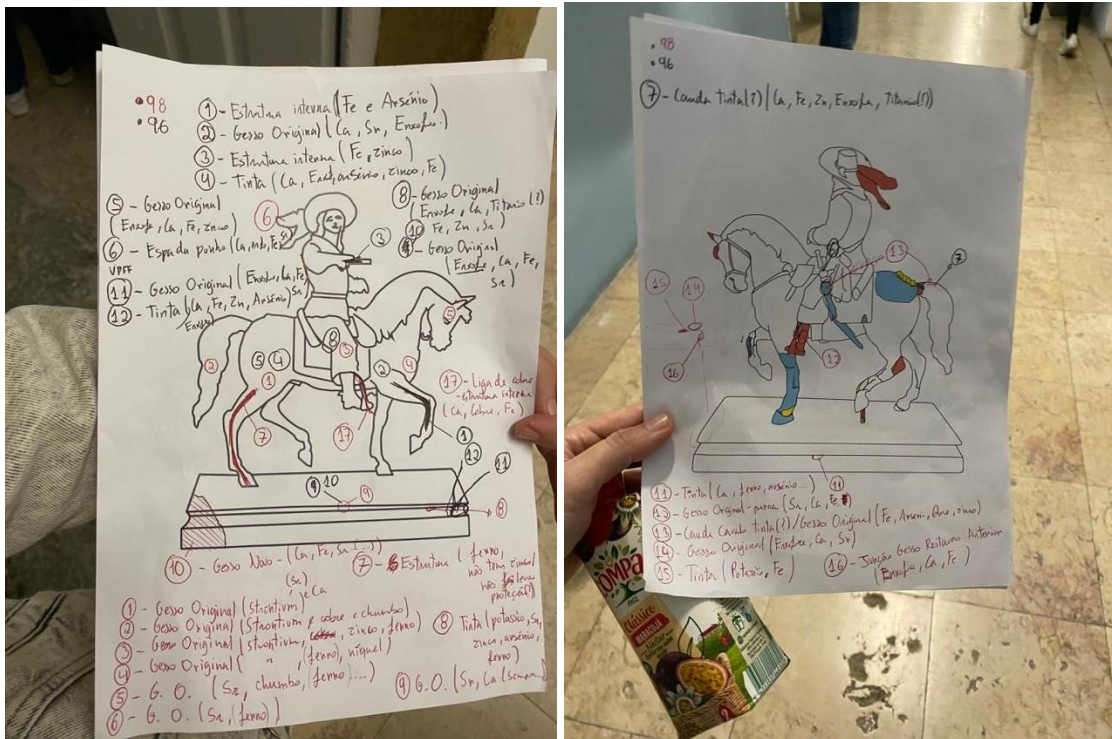 • 98
• 96
① - Estrutura interna (Fe e Arsénio)
② - Gesso Original (Ca, Sr, Enxofre.)
③ - Estrutura interna (Fe, zinco)
④ - Tinta (Ca, Enxf, arsénio, zinco, Fe)
⑤ - Gesso Original
(Enxofre, Ca, Fe, zinco)
⑥ - Espada punho (Ca,
⑧ - Gesso Original
(Enxofre, Ca, Titanio (?)
Fe, Zn, Sr)
⑩
Gesso Original
(Enxofre, Ca, Fe,
Sr)
⑪ - Gesso Original (Enxofre, Ca, Fe,
Sr)
⑫ - Tinta (Ca, Fe, Zn, Arsénio)
⑥
③
⑤
② ⑤ ④ ① ⑧ ③ ② ④
⑰ - Liga de cobre
- estrutura interna
(Ca, Cobre, Fe)
⑦ ⑰ ①
⑫ ⑪
⑨ 10 ⑨ ⑧
⑩ - Gesso Novo - (Ca, Fe, Sr (...)
⑦ - Estrutura (ferro,
não tem zinco/
não
proteção?)
① - Gesso Original (strontium)
(Sr) e Ca
② - Gesso Original (strontium e cobre e chumbo)
③ - Gesso Original (strontium, zinco, ferro)
④ - Gesso Original ( " , (ferro), níquel)
⑤ - G. O. (Sr, chumbo, (ferro)...)
⑥ - G. O. (Sr, (ferro)
⑧ Tinta (potasio, Sr,
zinco, arsénio,
ferro)
⑨ G.O. (Sr, Ca
• 98
• 96
⑦ - Cauda Tinta (?) | (Ca, Fe, Zn, Enxofre, Titanio(!))
⑬
⑦
⑮ ⑭
⑯
⑫
⑪
⑪ - Tinta (Ca, ferro, arsénio...)
⑫ - Gesso Original - perna (Sr, Ca, Fe)
⑬ - Cauda Cavalo tinta(?)/Gesso Original (Fe, Arsenio, Cobre, zinco)
⑭ - Gesso Original (Enxofre, Ca, Sr)
⑮ - Tinta (Potasio, Fe)
⑯ - Junção Gesso Restauro Anterior
(Enxofre, Ca, Fe)
COMPA
Clássico
MARACUJÁ
Néctar